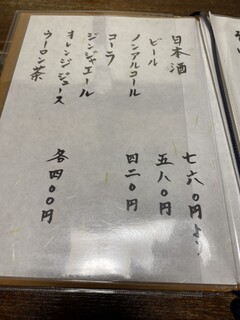 日本酒 七六〇円より
ビール 五八〇円
ノンアルコール 四二〇円
コーラ
ジンジャエール
オレンジジュース
ウーロン茶 各四〇〇円